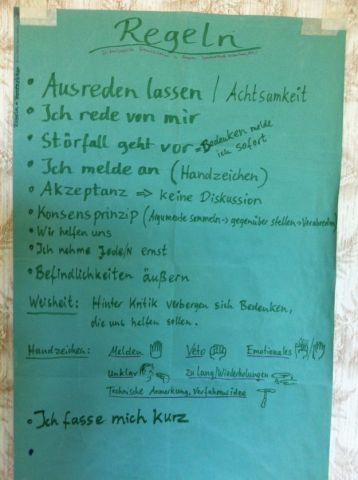 Regeln
• Ausreden lassen / Achtsamkeit
• Ich rede von mir
• Störfall geht vor = Bedenken melde
ich sofort
• Ich melde an (Handzeichen)
• Akzeptanz => keine Diskussion
• Konsensprinzip (Argumente sammeln → gegenüber stellen →
• Wir helfen uns
• Ich nehme Jede/N ernst
• Befindlichkeiten äußern
Weisheit: Hinter Kritik verbergen sich Bedenken,
die uns helfen sollen.
Handzeichen: Melden Veto Emotionales
Unklar zu Lang/Wiederholungen
Technische Anmerkung, Verfahrensidee
• Ich fasse mich kurz
•